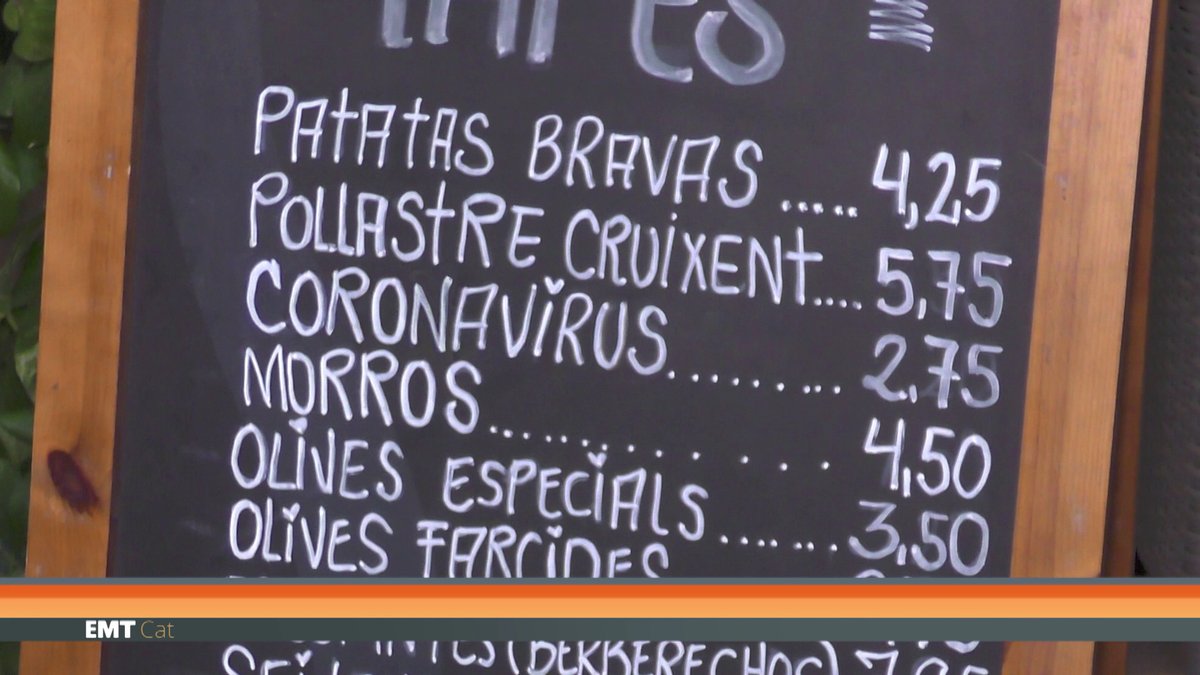 PATATAS BRAVAS ..... 4,25
POLLASTRE CRUIXENT.... 5,75
CORONAVIRUS.......... 2,75
MORROS.............. 4,50
OLIVES ESPECIALS....... 3,50
OLIVES FARCIDES
EMT Cat
(BERBERECHOS)